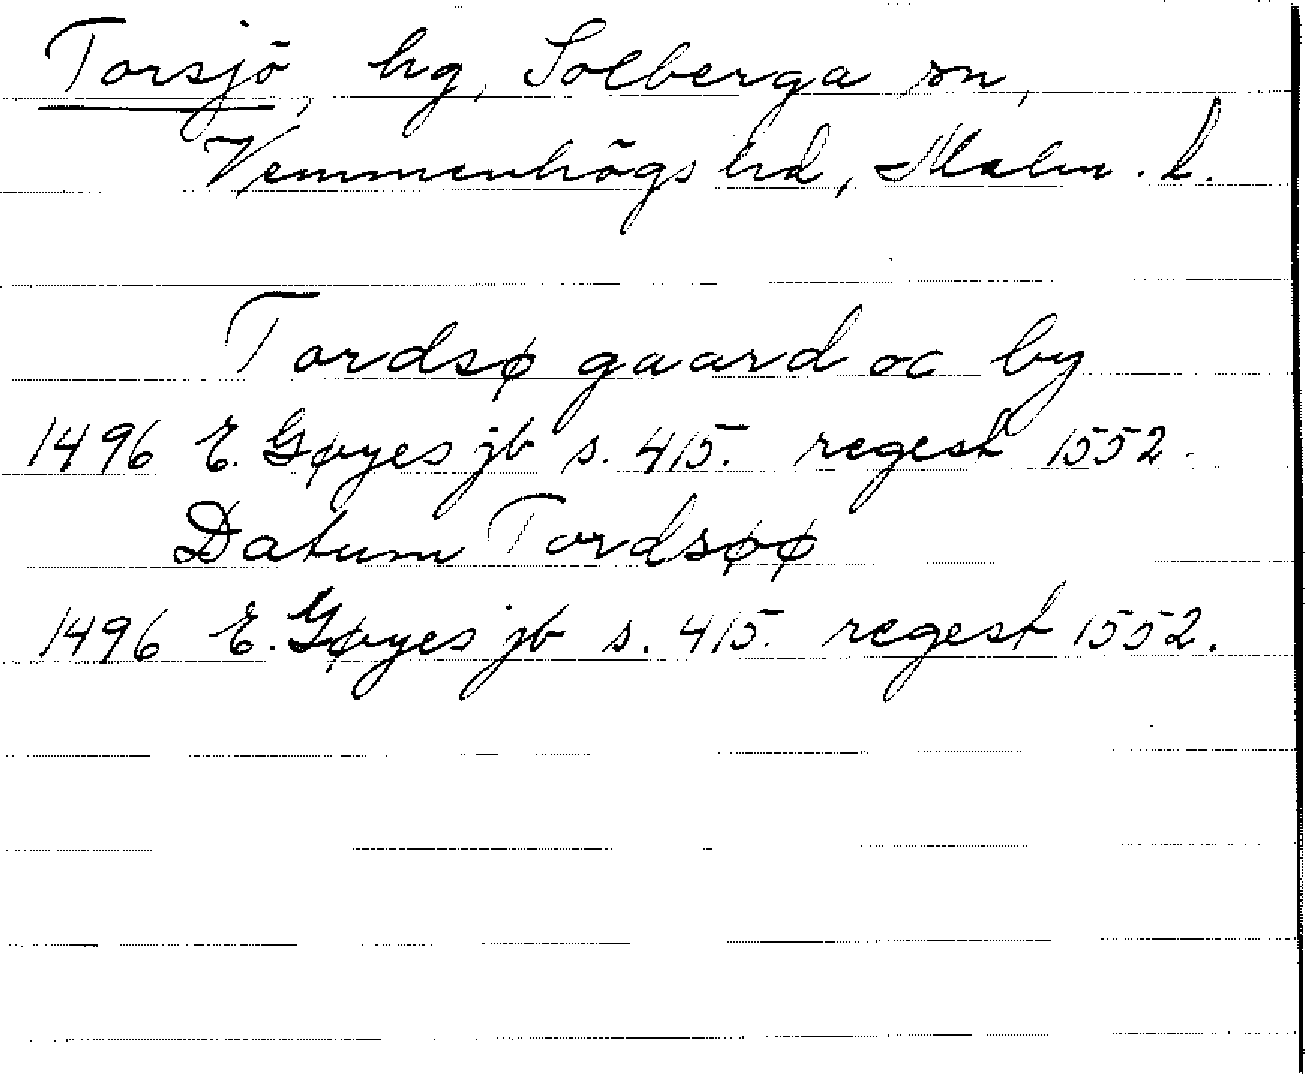 Torsjö, hg, Solberga sn,
Vemmenhögs hd, Malm. l.
Tordsø gaard oc by
1496 E. Gøyes jb s. 415. regest 1552.
Datum Tordsøø
1496 E. Gøyes jb s. 415. regest 1552.